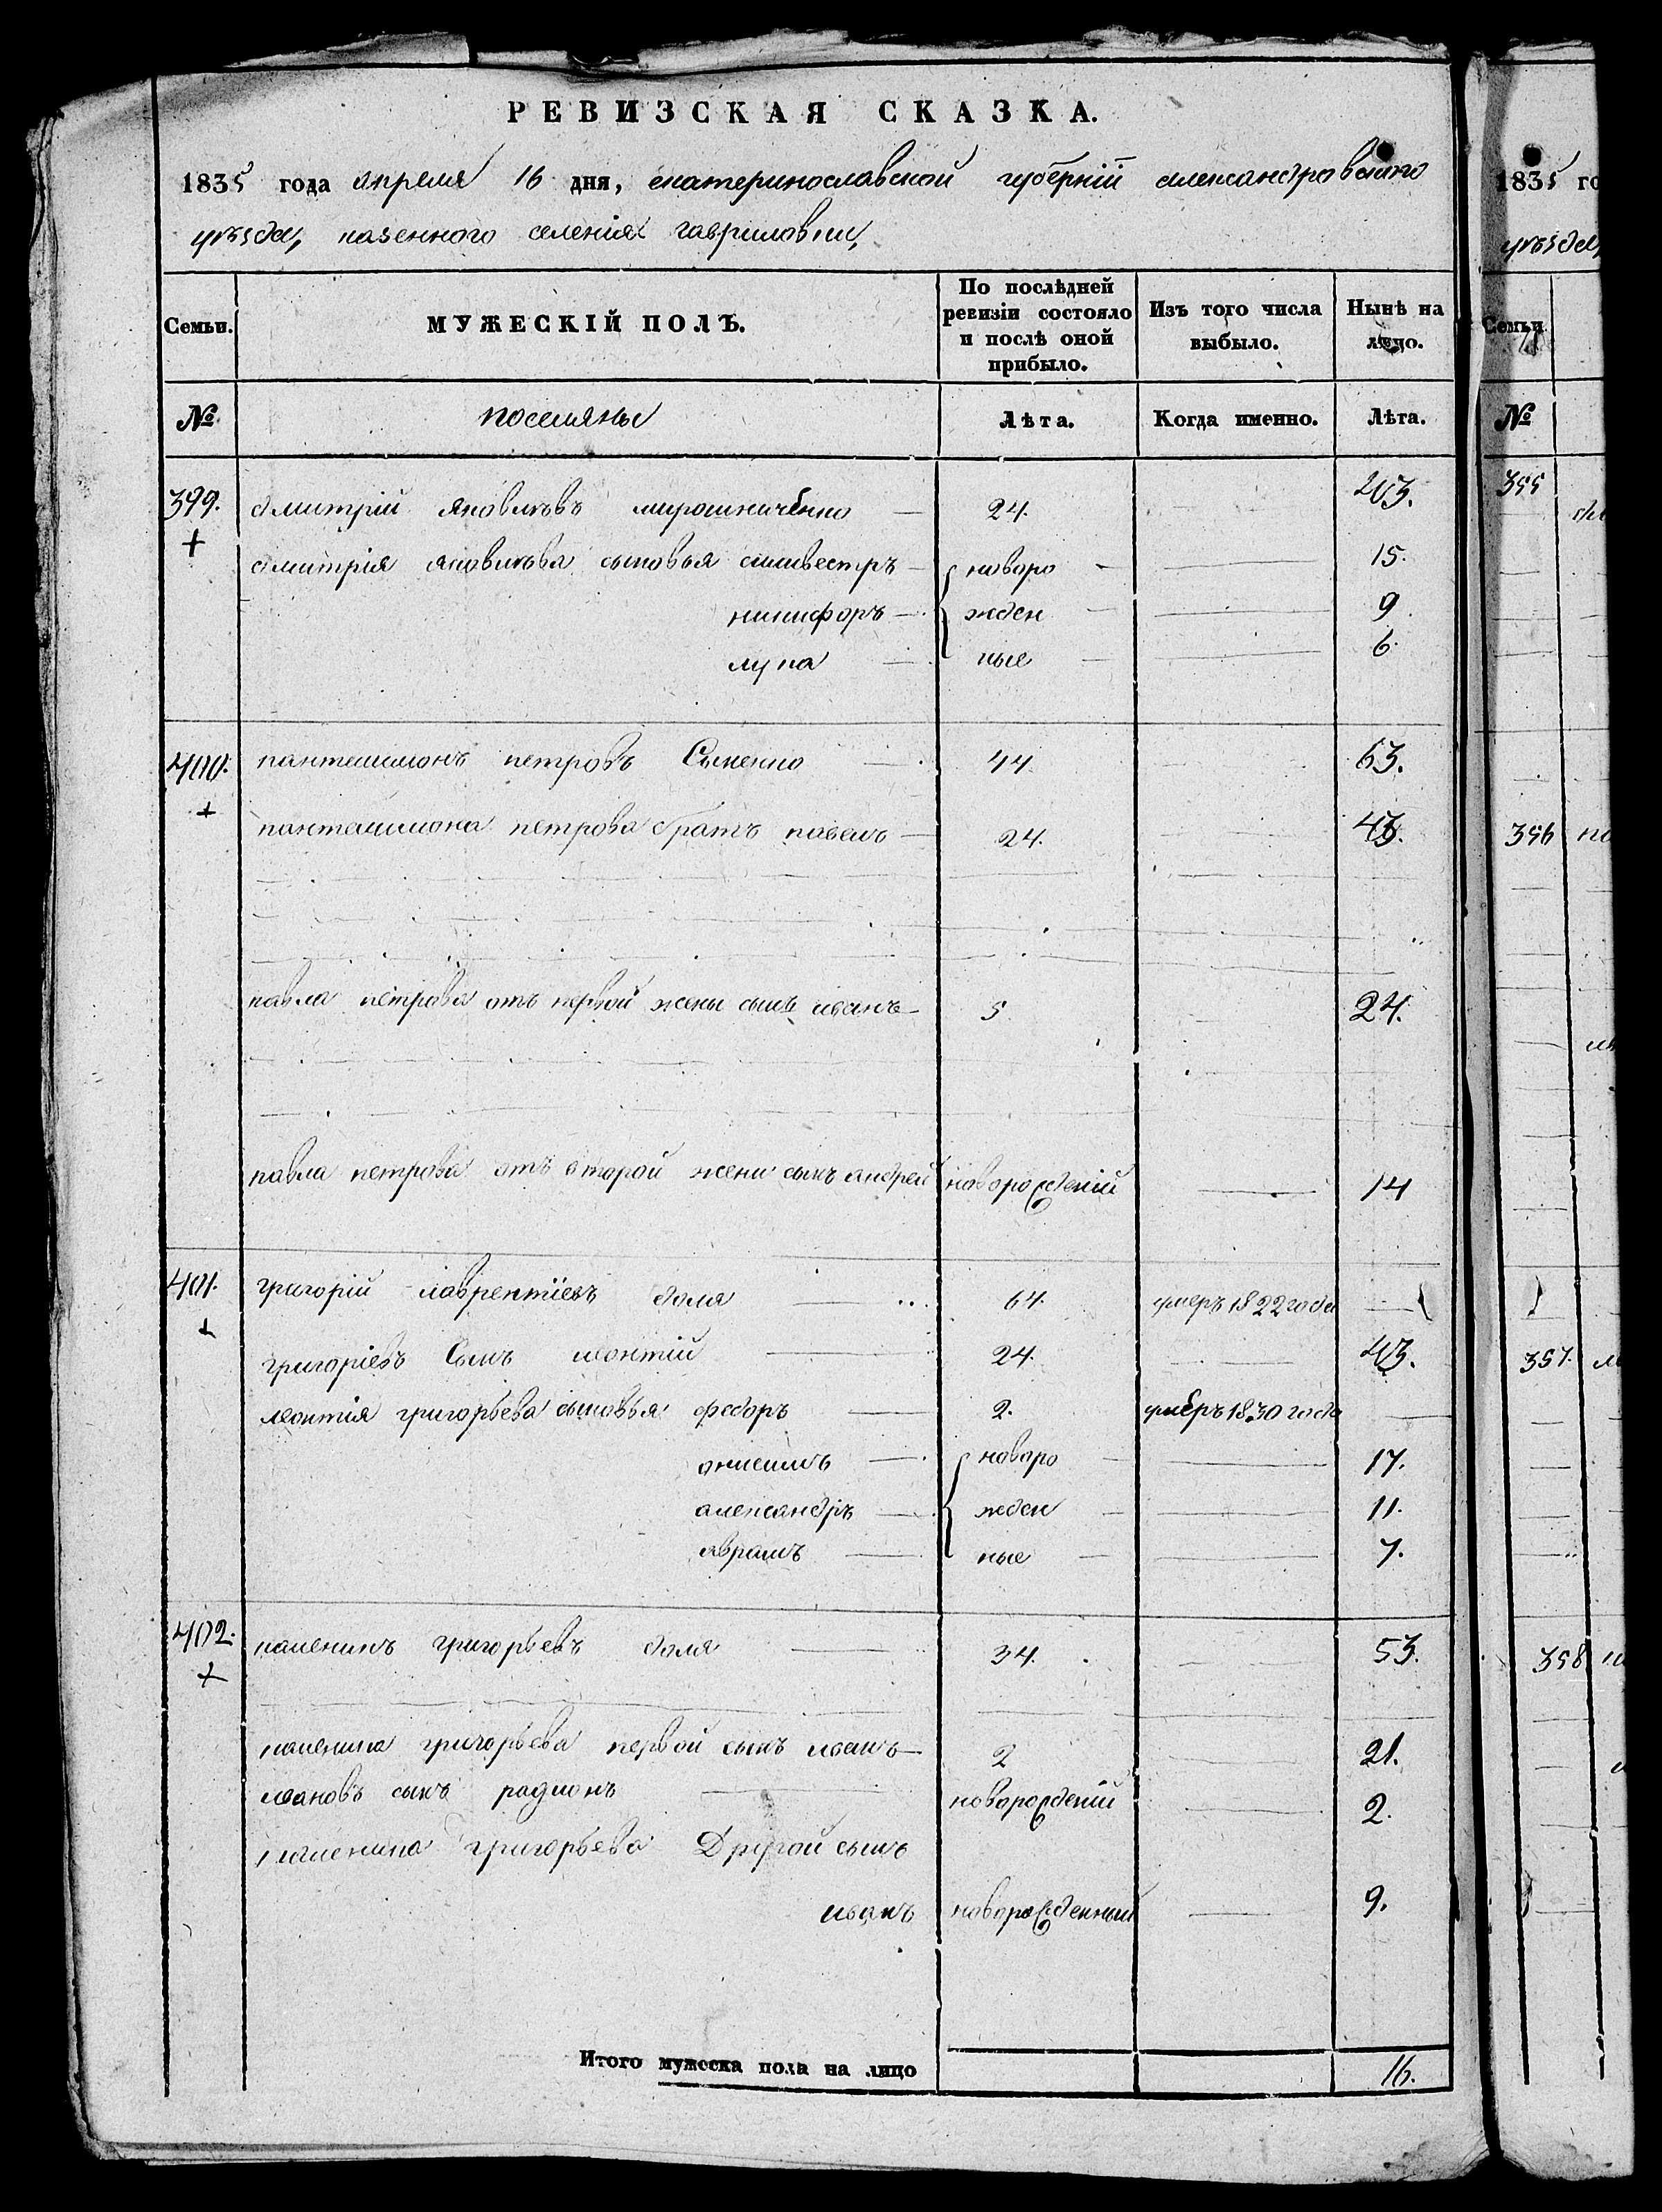 РЕВИЗСКАЯ СКАЗКА.
1835 года апреля 16 дня, екатеринославской губерніи александровского
уѣзда, казенного селенія гавриловки,
Семьи. МУЖЕСКІЙ ПОЛЪ. По послѣдней ревизіи состояло и послѣ оной прибыло. Изъ того числа выбыло. Нынѣ на лицо.
№ поселяны Лѣта. Когда именно. Лѣта.
399. дмитрій яковлѣвъ мирошниченко — 24. 43.
+ дмитрія яковлѣва сыновья силивестръ — новоро — 15.
никифоръ — жден — 9.
лука — ные — 6.
400. пантелимонъ петровъ Сыненко — 44. 63.
+ пантелимона петрова братъ павелъ — 24. 43.
павла петрова отъ первой жены сынъ иванъ — 5 24.
павла петрова отъ второй жени сынъ андрей новорожденій — 14
401. григорій лаврентіевъ доля — 64. умеръ 1822 года —
+ григоріевъ Сынъ леонтій — 24. 43.
леонтія григорьева сыновья федоръ — 2. умеръ 1830 года —
онисимъ — новоро — 17.
александръ — жден — 11.
аврамъ — ные — 7.
402. каленикъ григорьевъ доля — 34. 53.
+ каленика григорьева первой сынъ иванъ — 2 21.
ивановъ сынъ радионъ — новорожденій — 2.
каленика григорьева Другой сынъ
иванъ новорожденный — 9.
Итого мужеска пола на лицо 16.
1835 го
уѣзда,
Семьи.
№
355
356
357.
358